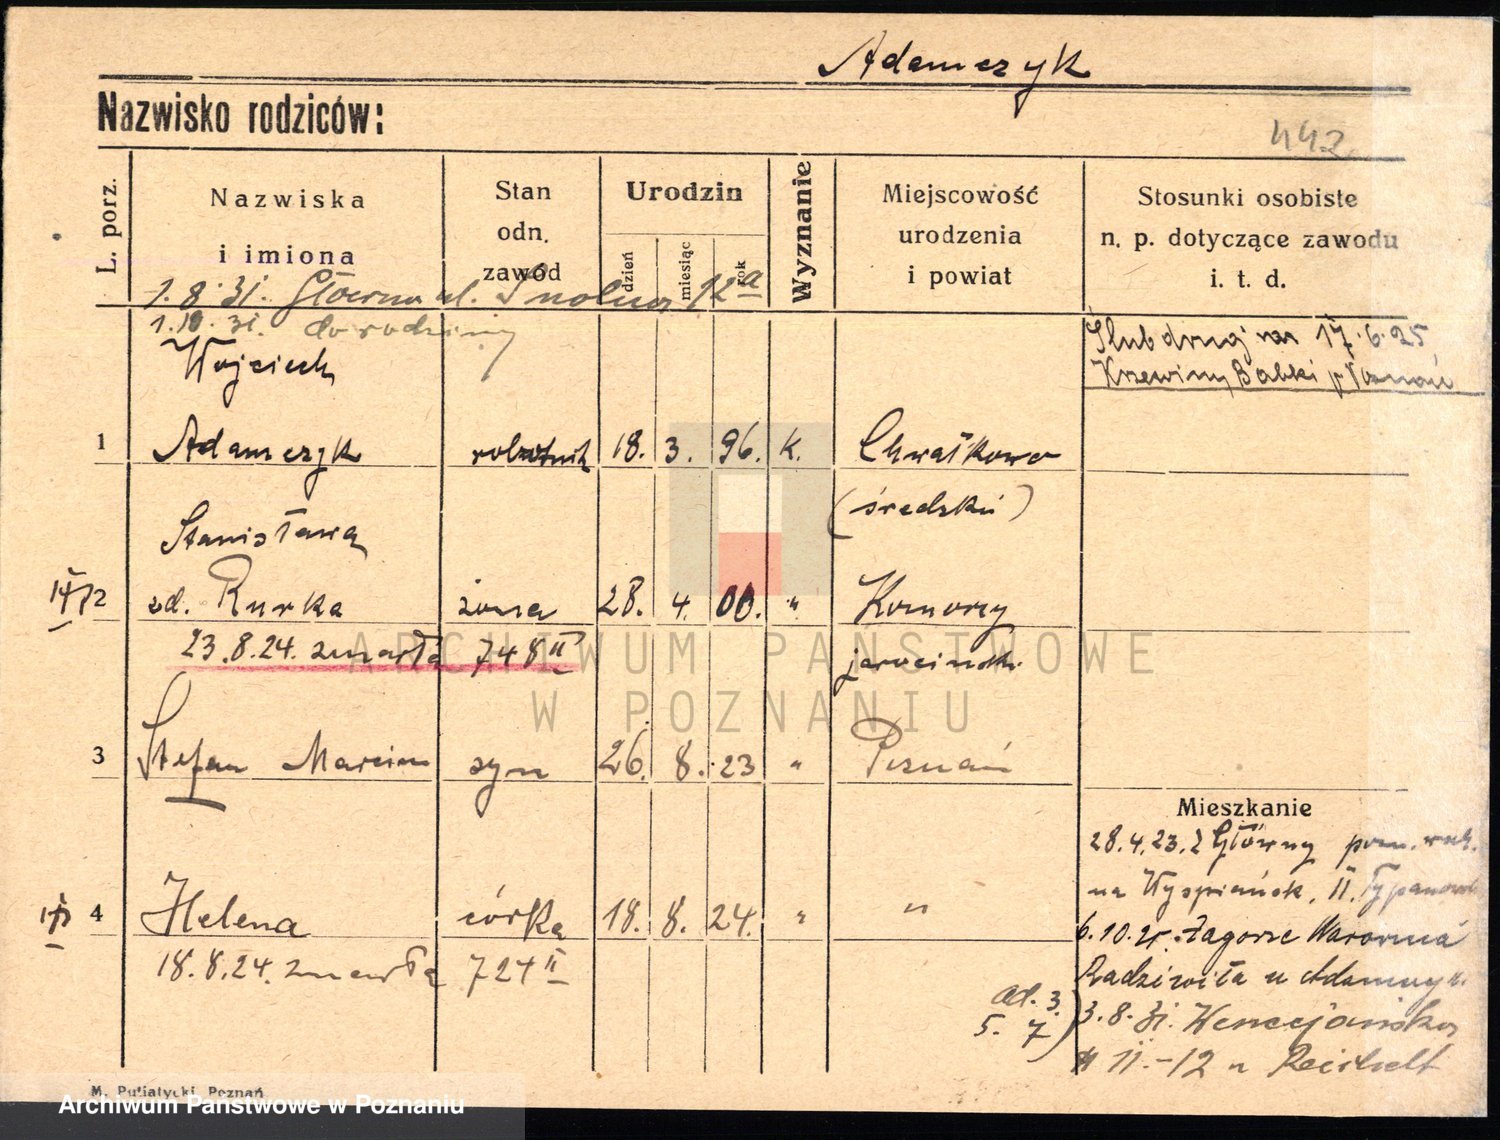 Adamczyk
Nazwisko rodziców:
442
L. porz.
Nazwiska
i imiona
Stan
odn.
zawód
Urodzin
dzień
miesiąc
rok
Wyznanie
Miejscowość
urodzenia
i powiat
Stosunki osobiste
n. p. dotyczące zawodu
i. t. d.
1.8.31. Główna ul. 12a
1.10.31. do rodziny
Ślub drugi 17.6.25
Poznań
Wojciech
1 Adamczyk robotnik 18. 3. 96. k. Chwałkowo
(średzki)
Stanisława
2 zd. Kurka żona 28. 4. 00. " Komorzy
23.8.24. zmarła 748 II jarociński
3 Stefan Marcin syn 26. 8. 23 " Poznań
Mieszkanie
28.4.23. z Główny
na II.
4 Helena córka 18. 8. 24. " "
6.10.25. Zagórze
18.8.24. zmarła 724 II
Radziwiła u Adamczyk
ad. 3.
5. 7)
3.8.31. Wenecjańska
11.-12 u Reichelt
M. Putiatycki, Poznań
ARCHIWUM PAŃSTWOWE
W POZNANIU
Archiwum Państwowe w Poznaniu